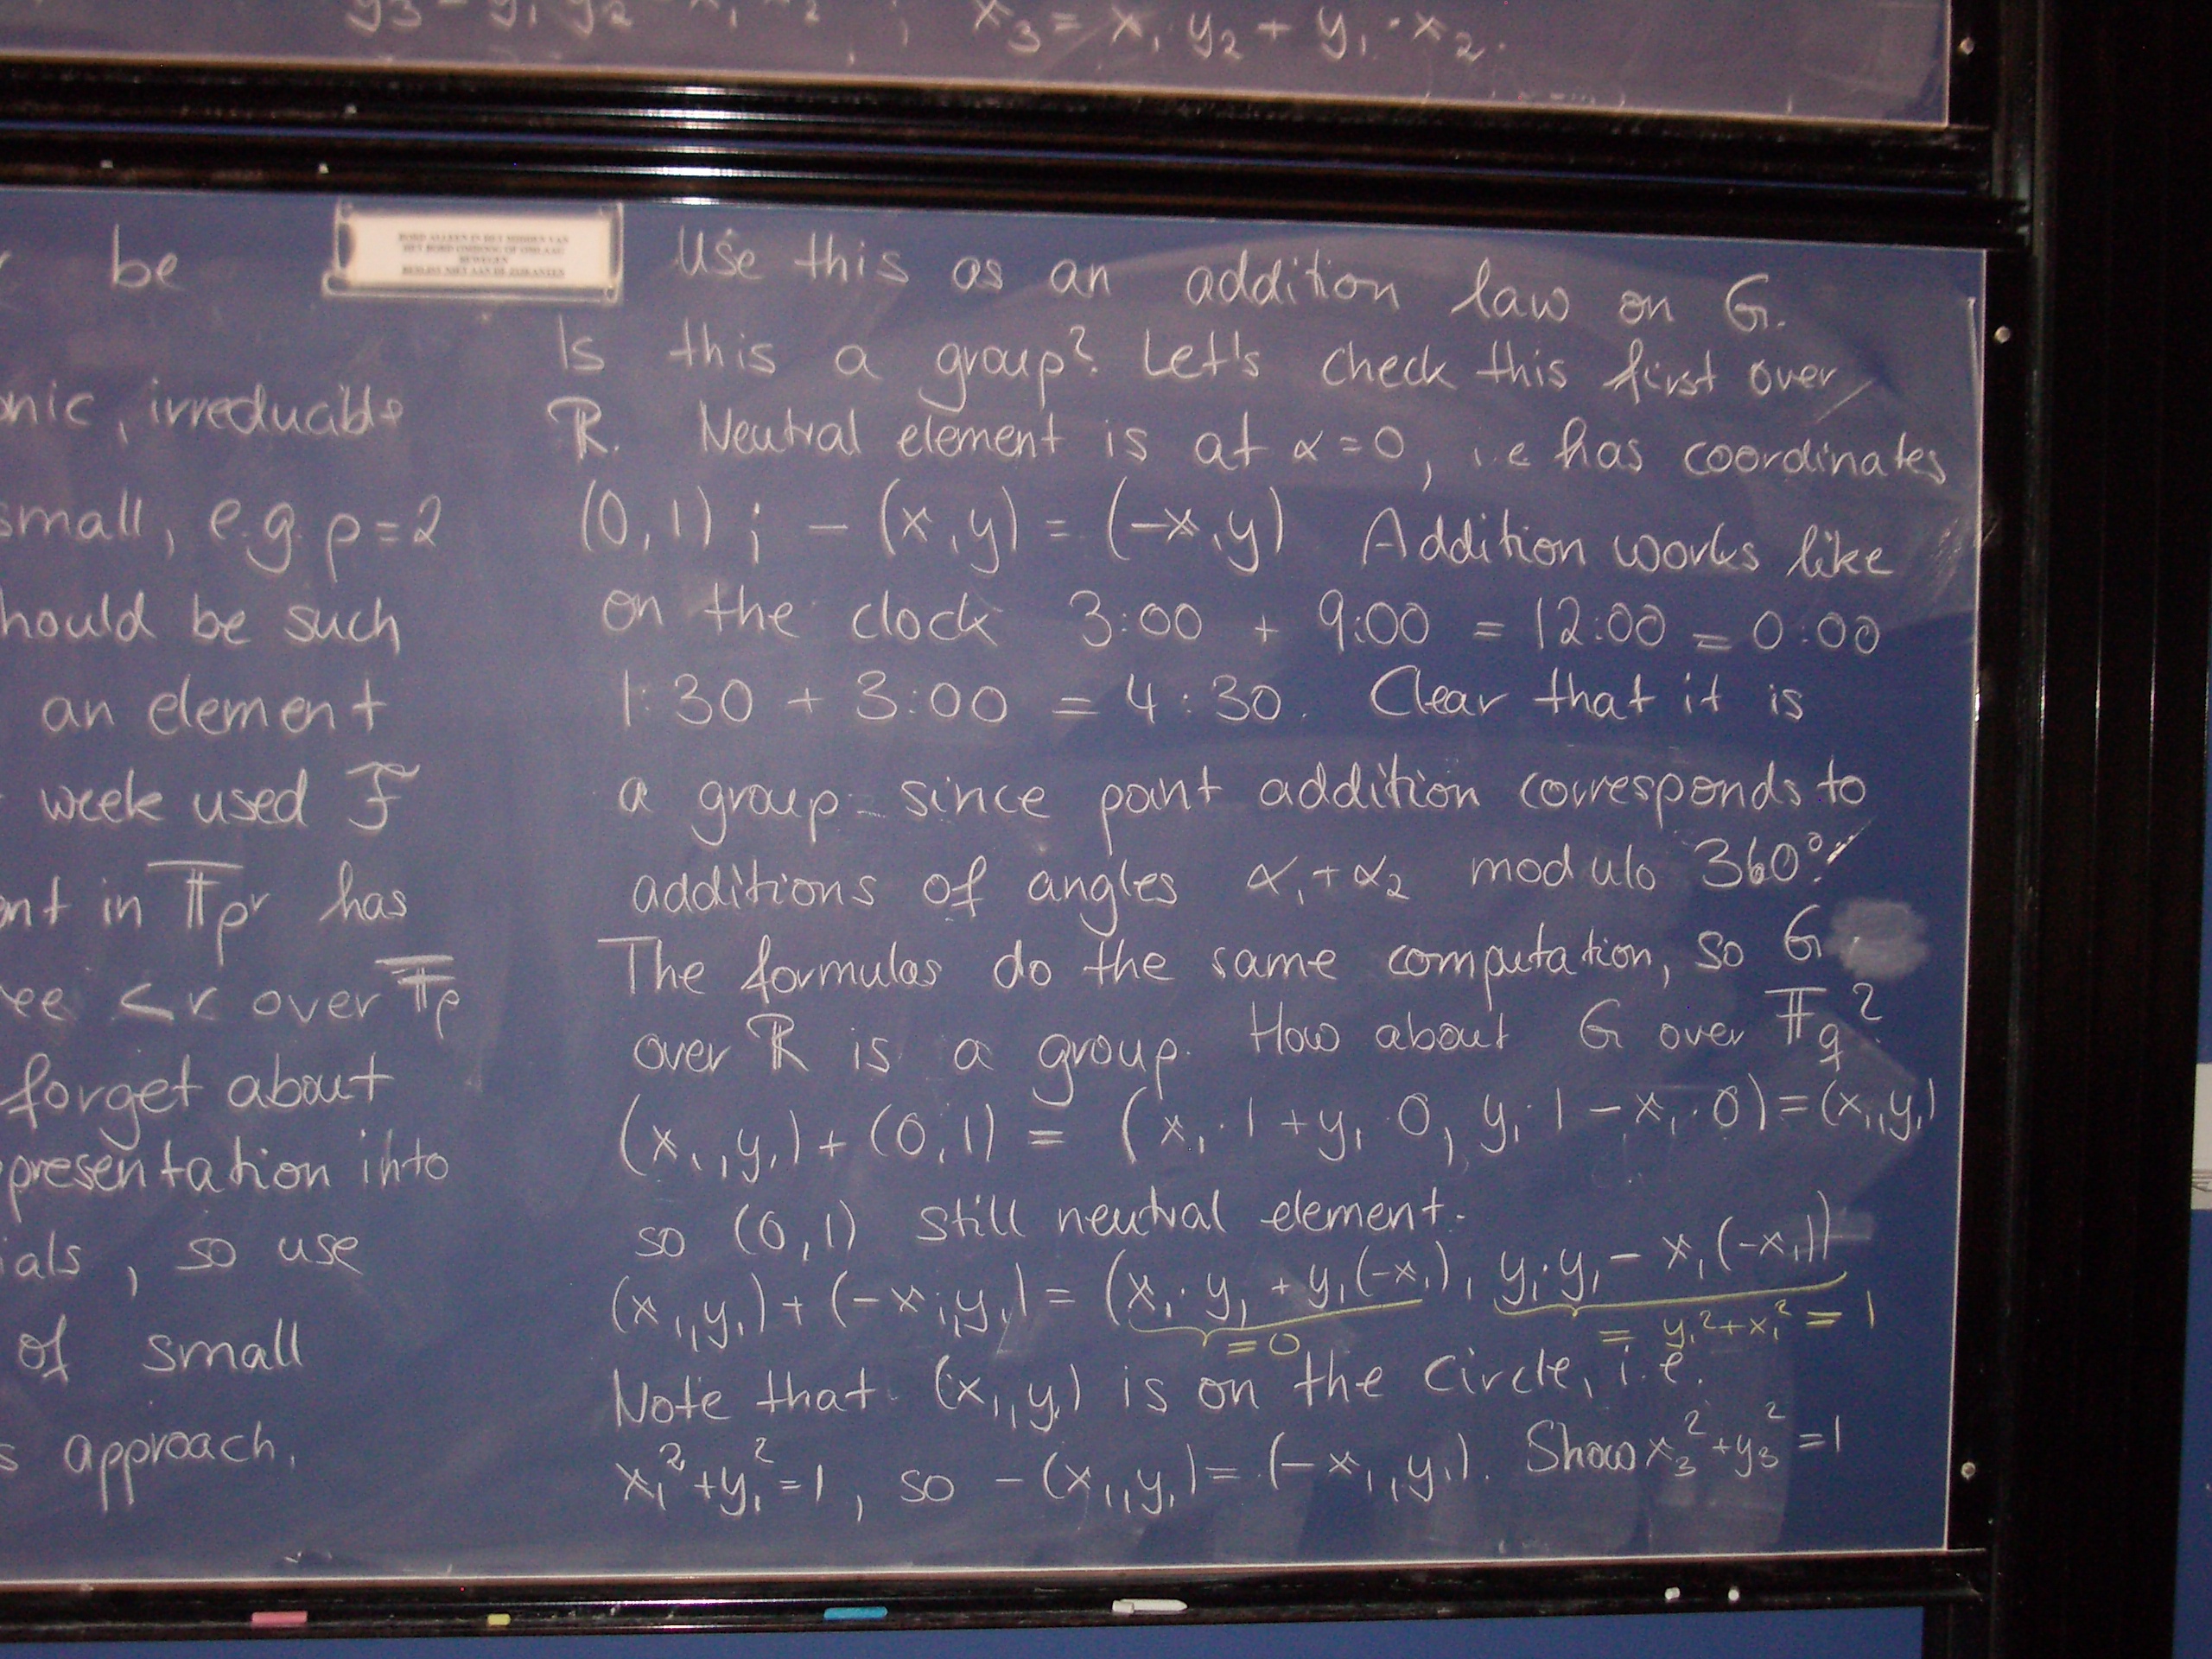 y₃ = y₁ y₂ - x₁ x₂ ; x₃ = x₁ y₂ + y₁ · x₂.
be
onic, irreducible
small, e.g. p=2
hould be such
an element
week used F
ent in 𝔽pʳ has
ee < r over 𝔽p
forget about
presentation into
ials, so use
of small
s approach.
BORD ALLEEN IN HET MIDDEN VAN
HET BORD OMHOOG OF OMLAAG
BEWEGEN
BEDIEN NIET AAN DE ZIJKANTEN
Use this as an addition law on G.
Is this a group? Let's check this first over
ℝ. Neutral element is at α=0, i.e has coordinates
(0,1) ; -(x,y) = (-x,y) Addition works like
on the clock 3:00 + 9:00 = 12:00 = 0:00
1:30 + 3:00 = 4:30. Clear that it is
a group - since point addition corresponds to
additions of angles α₁+α₂ modulo 360°.
The formulas do the same computation, so G
over ℝ is a group. How about G over 𝔽q?
(x₁,y₁)+(0,1) = (x₁·1+y₁·0, y₁·1-x₁·0)=(x₁,y₁)
so (0,1) still neutral element.
(x₁,y₁)+(-x₁,y₁) = (x₁·y₁+y₁(-x₁), y₁·y₁-x₁(-x₁))
=0 = y₁²+x₁² = 1
Note that (x₁,y₁) is on the circle, i.e.
x₁²+y₁²=1, so -(x₁,y₁)=(-x₁,y₁). Show x₃²+y₃²=1